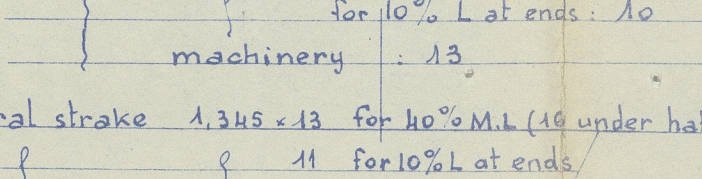 for 10% L at ends: 10
machinery : 13
ral strake 1,345 x 13 for 40% M.L (16 under hal
11 for 10% L at ends